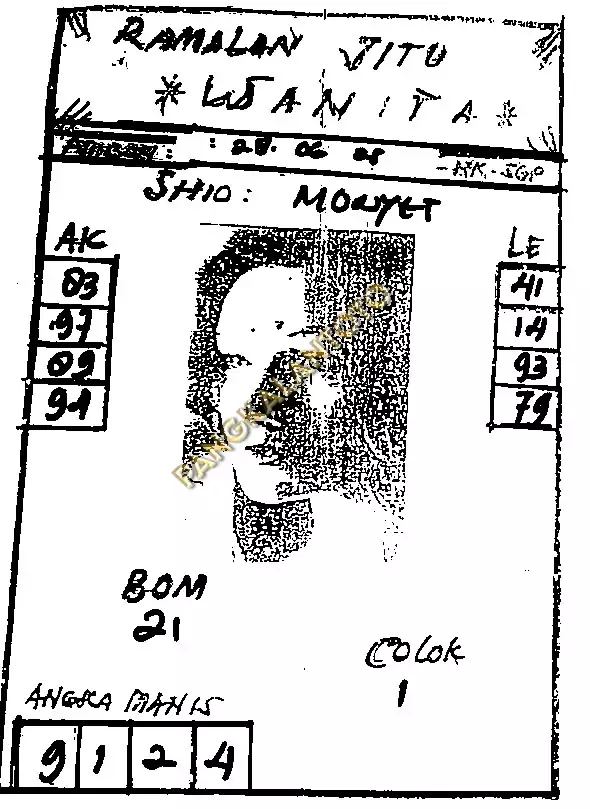 RAMALAN JITU
* WANITA *
: 28. 06 25
- HK - SGP
SHIO: MONYET
AK
03
97
09
94
LE
41
14
93
79
PANGKALANTOTO
BOM
21
COLOK
1
ANGKA MANIS
9 1 2 4